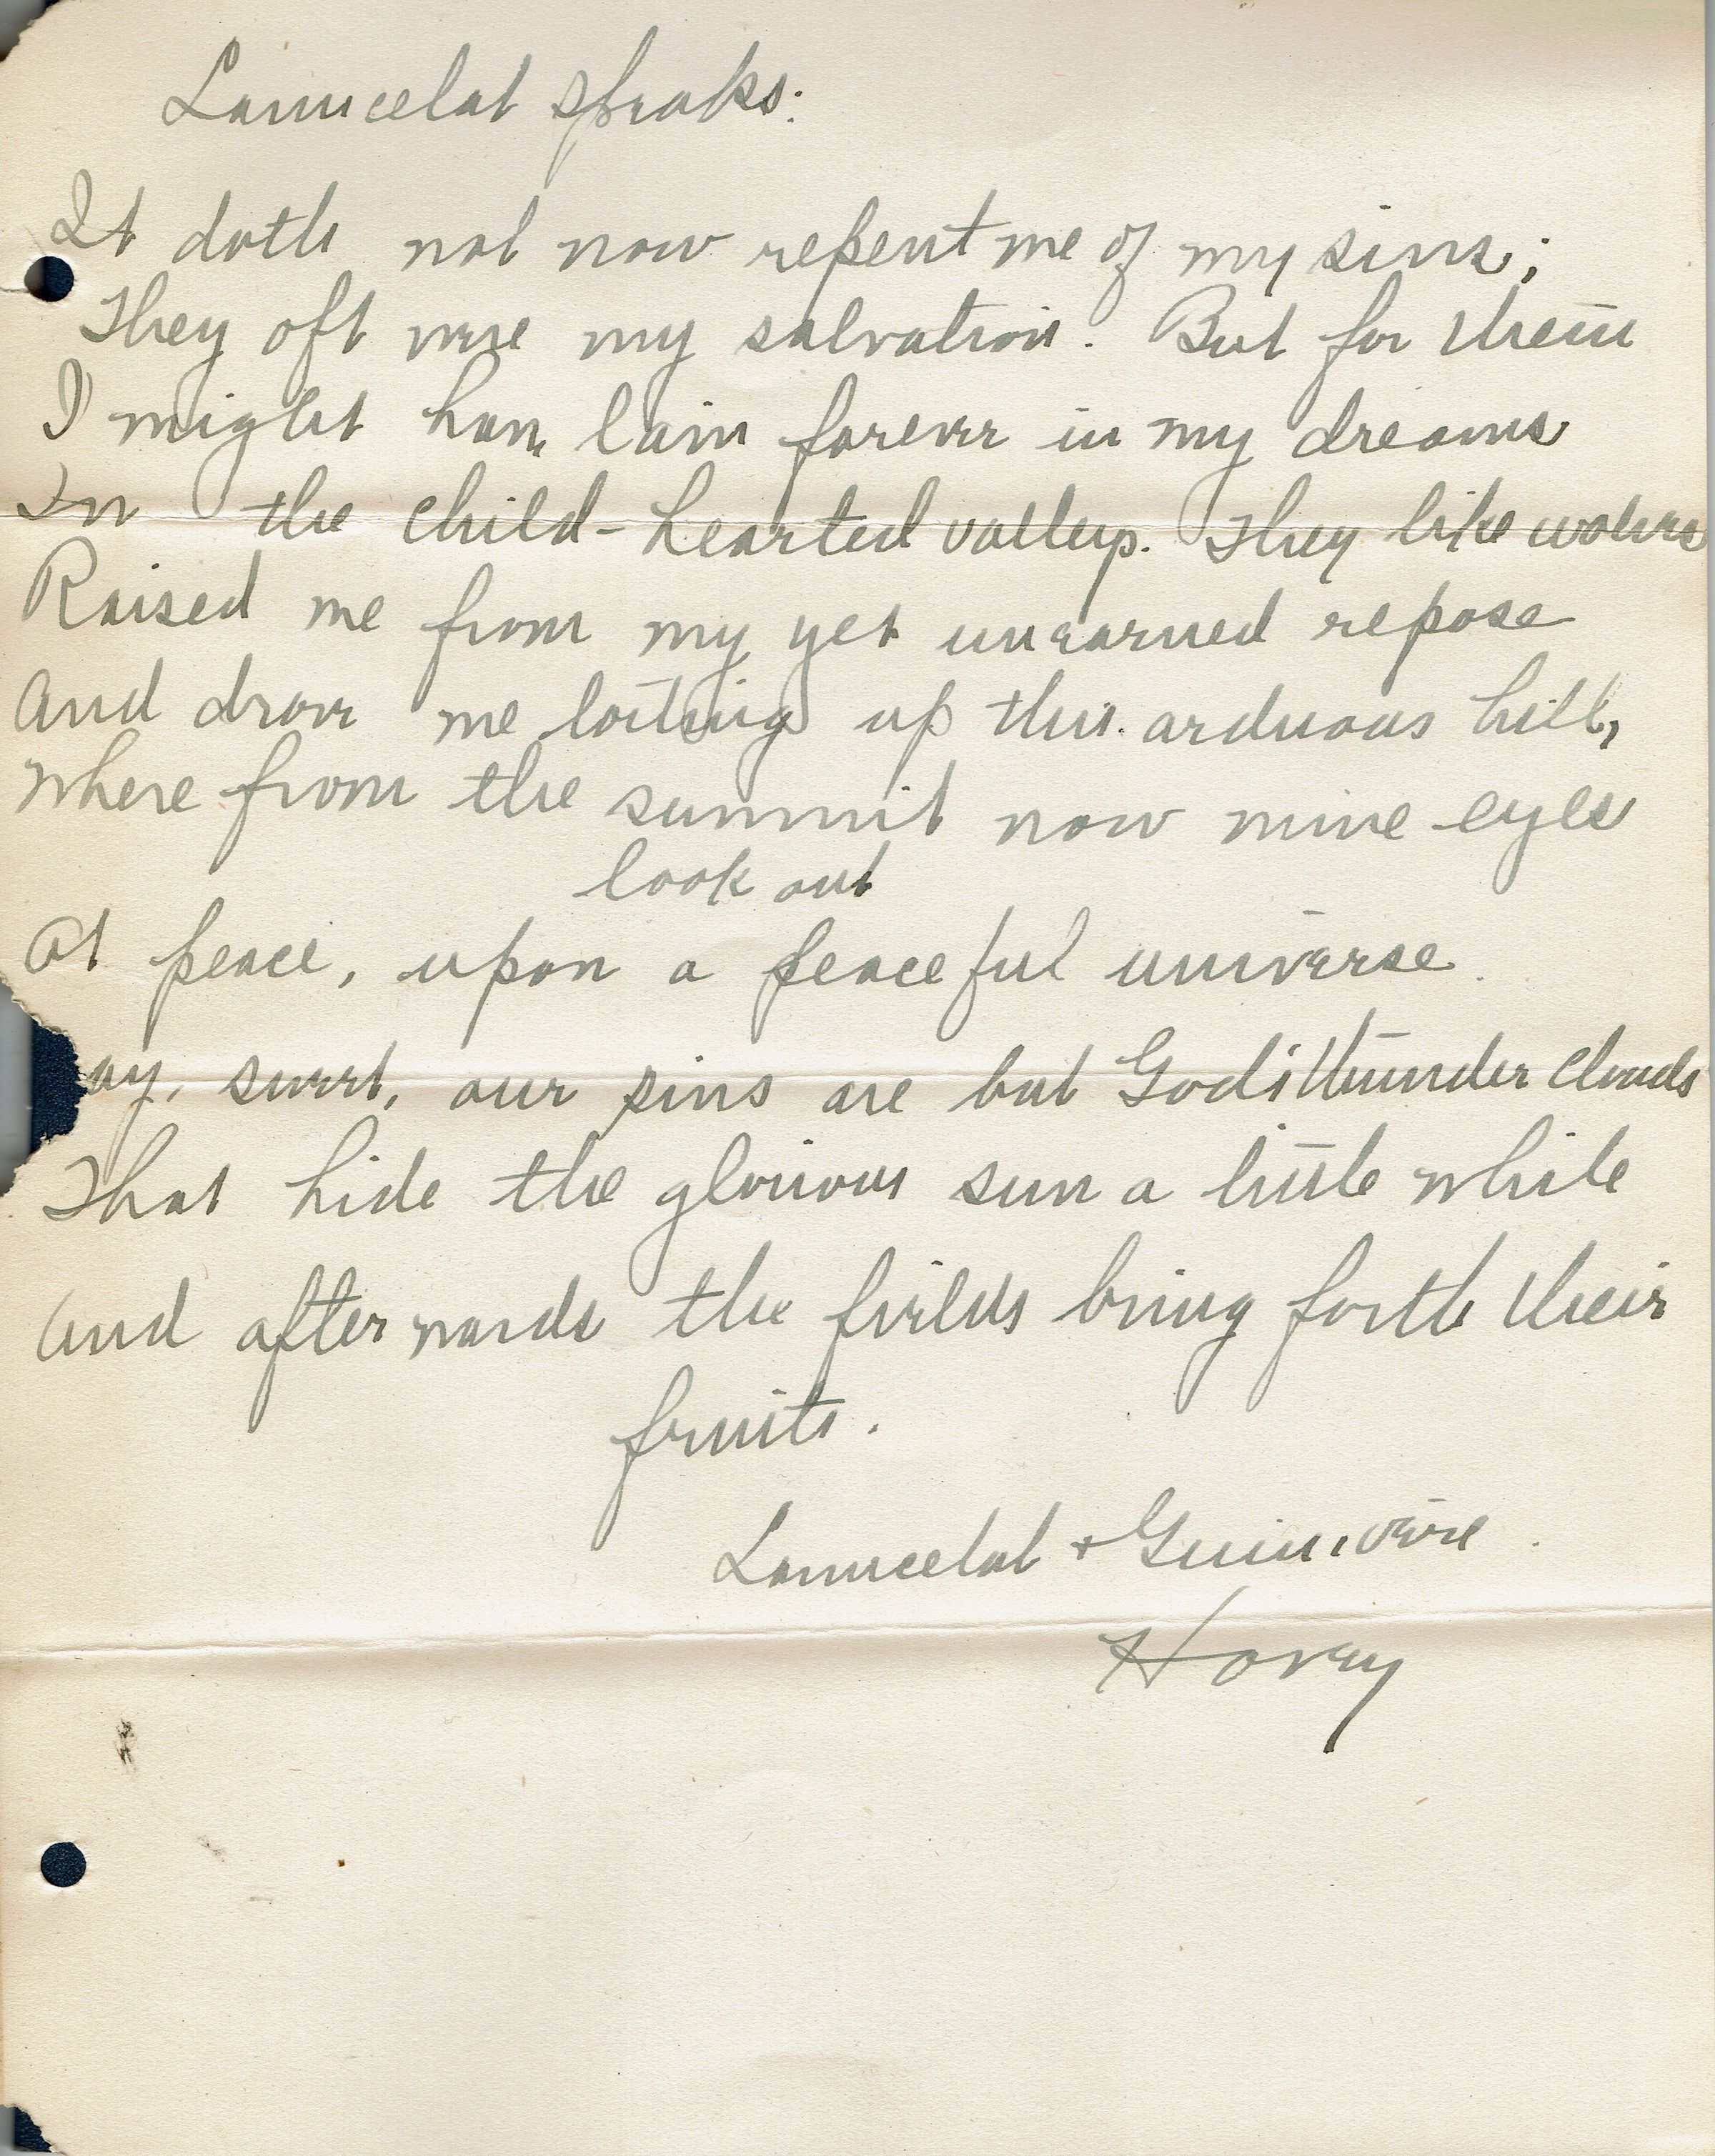 Launcelot speaks:
It doth not now repent me of my sins;
They oft were my salvation. But for them
I might have lain forever in my dreams
In the child-hearted valleys. They like wolves
Raised me from my yet unearned repose
And drove me up this arduous hill,
where from the summit now mine eyes
look out
At peace, upon a peaceful universe.
ay, sweet, our sins are but God's thunder clouds
That hide the glorious sun a little while
And afterwards the fields bring forth their
fruits.
Launcelot + Guinevere.
Hovey